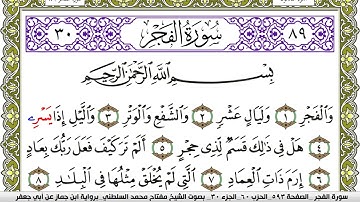 ٣٠ سُورَةُ الفَجْرِ ٨٩
بِسْمِ اللَّهِ الرَّحْمَٰنِ الرَّحِيمِ
وَالْفَجْرِ ١ وَلَيَالٍ عَشْرٍ ٢ وَالشَّفْعِ وَالْوَتْرِ ٣ وَالَّيْلِ إِذَا يَسْرِۦ
٤ هَلْ فِي ذَٰلِكَ قَسَمٌ لِّذِي حِجْرٍ ٥ أَلَمْ تَرَ كَيْفَ فَعَلَ رَبُّكَ بِعَادٍ
٦ إِرَمَ ذَاتِ الْعِمَادِ ٧ الَّتِي لَمْ يُخْلَقْ مِثْلُهَا فِي الْبِلَٰدِ
سورة الفجر _ الصفحة ٥٩٣ _ الحزب ٦٠ _ الجزء ٣٠ _ بصوت الشيخ مفتاح محمد السلطني _ برواية ابن جماز عن أبي جعفر